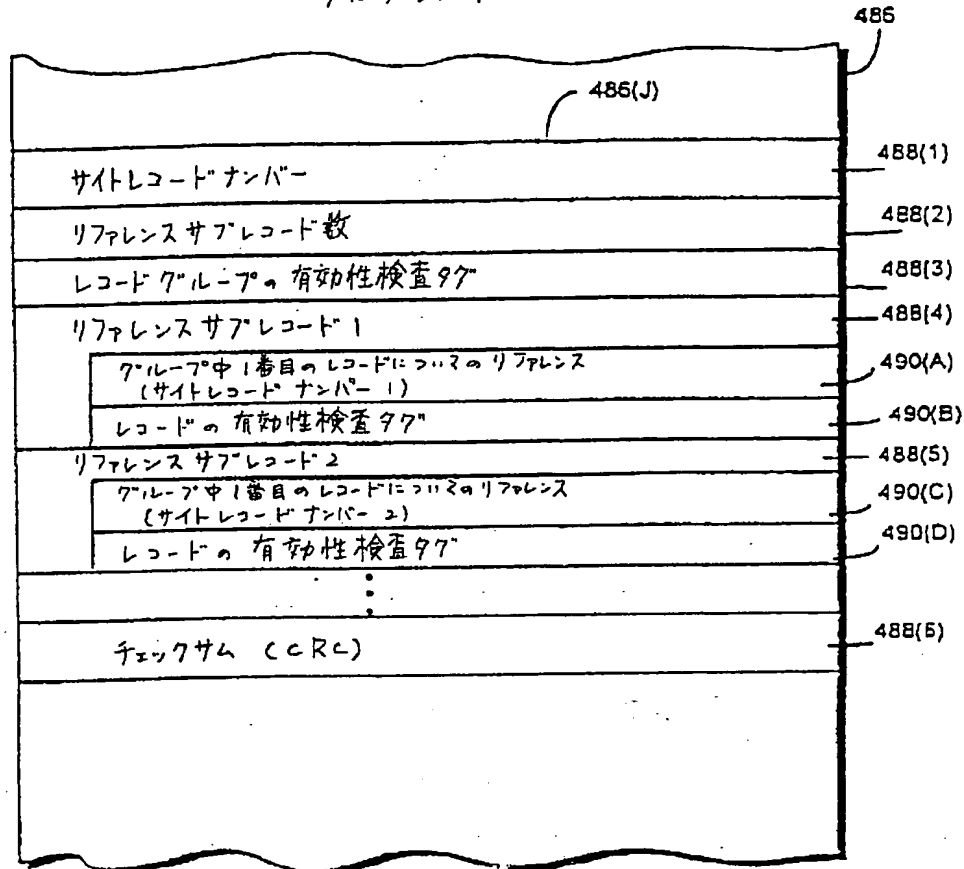 486
486(J)
サイトレコードナンバー
488(1)
リファレンスサブレコード数
488(2)
レコードグループの有効性検査タグ
488(3)
リファレンスサブレコード1
488(4)
グループ中1番目のレコードについてのリファレンス
(サイトレコードナンバー1)
490(A)
レコードの有効性検査タグ
490(B)
リファレンスサブレコード2
488(5)
グループ中1番目のレコードについてのリファレンス
(サイトレコードナンバー2)
490(C)
レコードの有効性検査タグ
490(D)
チェックサム (CRC)
488(6)